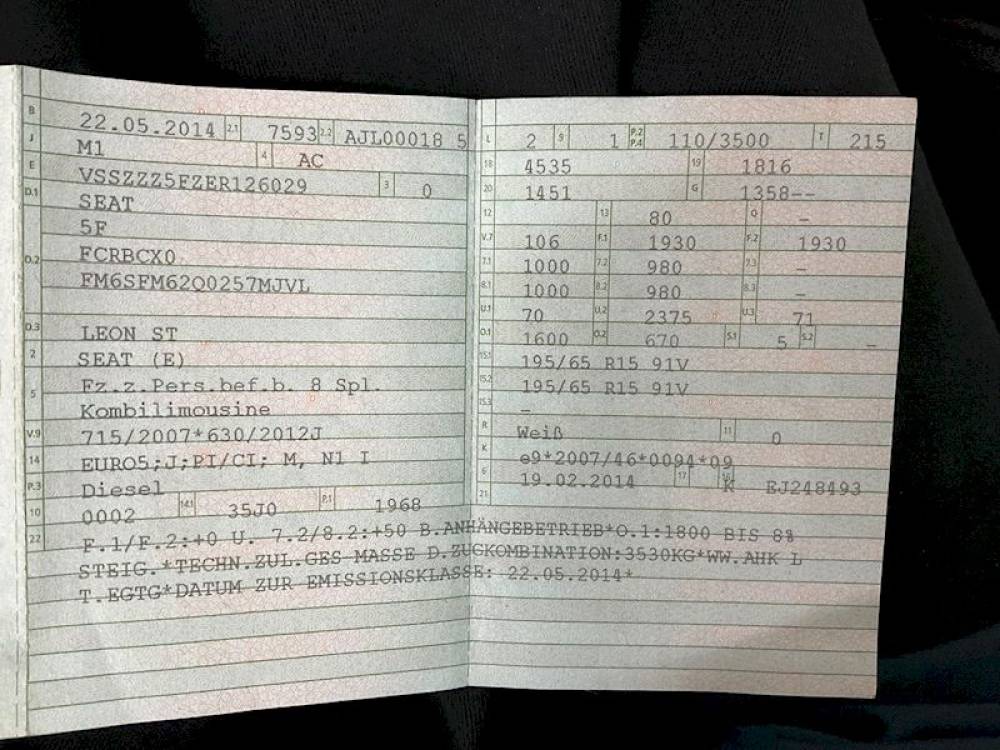 B 22.05.2014 2.1 7593 2.2 AJL00018 5
J M1 4 AC
E VSSZZZ5FZER126029 3 0
D.1 SEAT
5F
D.2 FCRBCX0
FM6SFM62Q0257MJVL
D.3 LEON ST
2 SEAT (E)
5 Fz.z.Pers.bef.b. 8 Spl.
Kombilimousine
V.9 715/2007*630/2012J
14 EURO5;J;PI/CI; M, N1 I
P.3 Diesel
10 0002 14.1 35J0 P.1 1968
L 2 9 1 P.2 P.4 110/3500 T 215
18 4535 19 1816
20 1451 G 1358--
12 13 80 Q –
V.7 106 F.1 1930 F.2 1930
7.1 1000 7.2 980 7.3 –
8.1 1000 8.2 980 8.3 –
U.1 70 U.2 2375 U.3 71
O.1 1600 O.2 670 S.1 5 S.2 –
15.1 195/65 R15 91V
15.2 195/65 R15 91V
15.3 –
R Weiß 11 0
K e9*2007/46*0094*09
6 19.02.2014 17 K EJ248493
21
22 F.1/F.2:+0 U. 7.2/8.2:+50 B.ANHÄNGEBETRIEB*O.1:1800 BIS 8%
STEIG.*TECHN.ZUL.GES-MASSE D.ZUGKOMBINATION:3530KG*WW.AHK L
T.EGTG*DATUM ZUR EMISSIONSKLASSE: 22.05.2014*